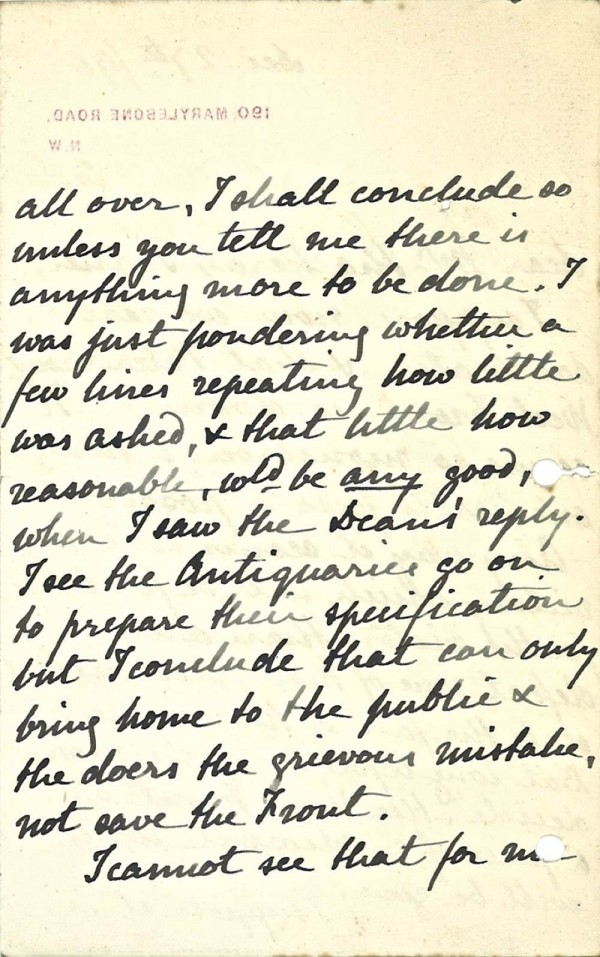 190, MARYLEBONE ROAD,
N.W
all over, I shall conclude so
unless you tell me there is
anything more to be done. I
was just pondering whether a
few lines repeating how little
was asked, & that little how
reasonable, wld be any good,
when I saw the Dean's reply.
I see the Antiquaries go on
to prepare their specification
but I conclude that can only
bring home to the public &
the doers the grievous mistake,
not save the Front.
I cannot see that for me